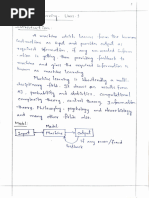 Learning Unit 1
Introduction
A machine which learns from the human
instruction as input and provide output as
required information, if any un-wanted inform-
ation is getting then providing fallback to
machine and gives the required information is
known as machine learning.
Machine learning is inherently a multi-
disciplinary field. It draws out results
as probability and statistics, computational
complexity theory, control theory, Information
theory, Philosophy, psychology and neurobiology
and many other fields also.
Model: Model
Input Machine Output
if any error/fraud
feedback